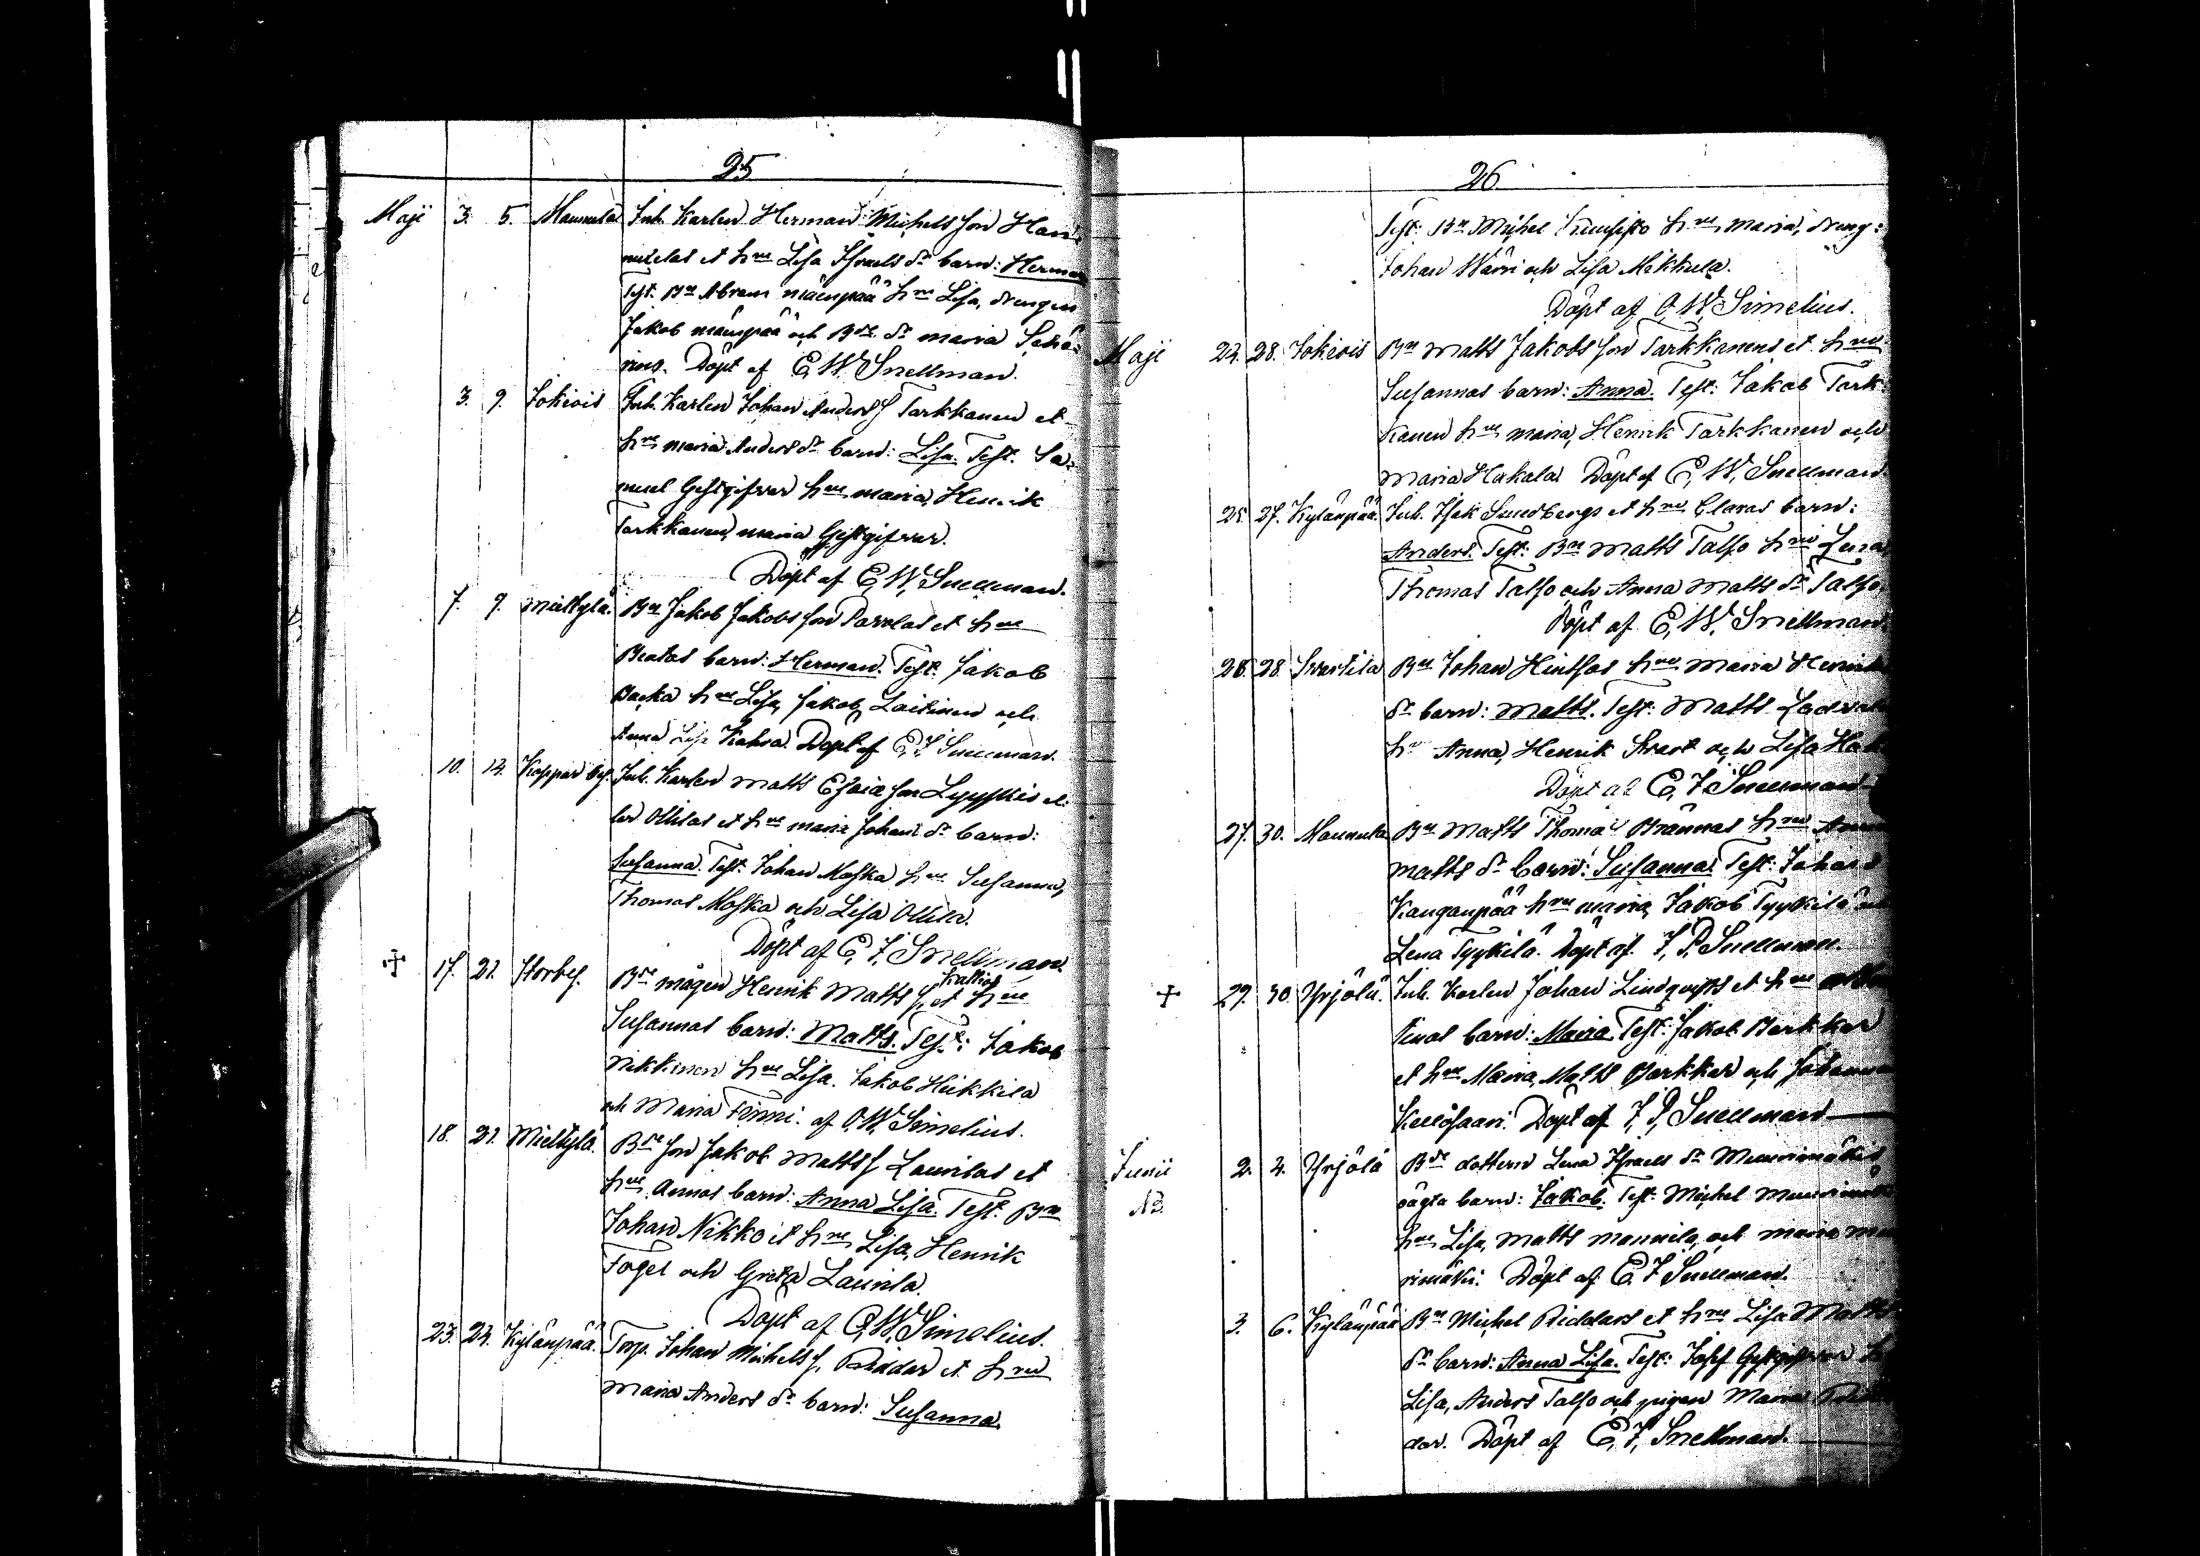 25
Maji 3. 5. Mannula Inh. Karlen Herman Michels son Han-
nulas et h:nes Lisa Israels d:r barn: Herman
Test. B:n Abram mäenpää h:nes Lisa, drengen
Jakob mäenpää och B:ds d:r maria
Döpt af E. W. Snellman.
3. 9. Jokiois Inh. Karlen Johan Anders s. Tarkkanen et
h:nes maria Anders d:r barn: Lisa. Test. Sa-
muel Gestgifvar h:nes maria, Henrik
Tarkkanen, maria Gestgifvar.
Döpt af E. W. Snellman.
7. 9. Mielkylä B:n Jakob Jakobs son Parvlas et h:nes
Beatas barn: Herman. Test. Jakob
Backa h:nes Lisa, Jakob Laitinen och
Anna Lisa Kahra. Döpt af E. F. Snellman.
10. 12. Kopparby. Inh. Karlen Matts Esaias son Lyyskis el-
ler Ollilas et h:nes maria Johans d:r barn:
Susanna. Test. Johan Maska h:nes Susanna,
Thomas Maska och Lisa Ollila.
Döpt af E. F. Snellman.
17. 21. Storby. B:ds mågen Henrik Matts s. Kallios et h:nes
Susannas barn: Matts. Test: Jakob
Nikkinen h:nes Lisa. Jakob Heikkilä
och Maria Finni. af O. W. Simelius.
18. 21. Mielkylä. B:ds son Jakob Matts s. Laurilas et
h:nes Annas barn: Anna Lisa. Test. B:n
Johan Nikko et h:nes Lisa, Henrik
Fogel och Greta Laurila.
Döpt af O. W. Simelius.
23. 24. Kylänpää. Torp. Johan Michels s. Riddar et h:nes
Maria Anders d:r barn: Susanna.
26
Test: B:n Michel h:nes Maria, dreng:
Johan Wärri och Lisa Mikkula.
Döpt af O. W. Simelius.
Maji 24. 28. Jokiois B:n Matts Jakobs son Tarkkanens et h:nes
Susannas barn: Anna. Test: Jakob Tark-
kanen h:nes maria, Henrik Tarkkanen och
Maria Hakala. Döpt af E. W. Snellman.
25. 27. Kylänpää. Inh. Isak Smedbergs et h:nes Claras barn:
Anders. Test: B:n Matts Talso h:nes Lena,
Thomas Talso och Anna Matts d:r Talso.
Döpt af E. W. Snellman.
26. 28. Svartila B:n Johan Hintsas h:nes Maria Henriks
d:r barn: Matts. Test: Matts
h:s Anna, Henrik Svart och Lisa
Döpt af E. F. Snellman
27. 30. Mannula B:n Matts Thomas Brännas h:nes Anna
Matts d:r barn: Susanna. Test: Johan
Kanganpää h:nes maria, Jakob Tyykilä och
Lena Tyykilä. Döpt af F. P. Snellman.
29. 30. Yrjölä. Inh. Karlen Johan Lindqvists et h:nes
barn: Maria. Test: Jakob Barkkar
et h:nes Maria, Matts Barkkar och Johanna
Kellosaari. Döpt af F. P. Snellman
Junii 2. 4. Yrjölä B:ds dottern Lena Israels d:r Muurimäkis
NB. oägta barn: Jakob. Test: Michel Muurimäki
h:nes Lisa, Matts Mannila och maria
rimäki. Döpt af E. F. Snellman.
3. 6. Kylänpää B:n Michel Riddars et h:nes Lisa Matts
d:r barn: Anna Lisa. Test: Josef Gestgifvar
Lisa, Anders Talso och pigan Maria Rid-
dar. Döpt af E. F. Snellman.